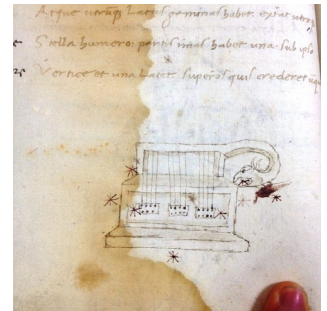 Atque utrũq Latus geminas habet. extat utriq
Stella humero: part simas habet una sub ipso
Vertice et una Latet superos quis crederet